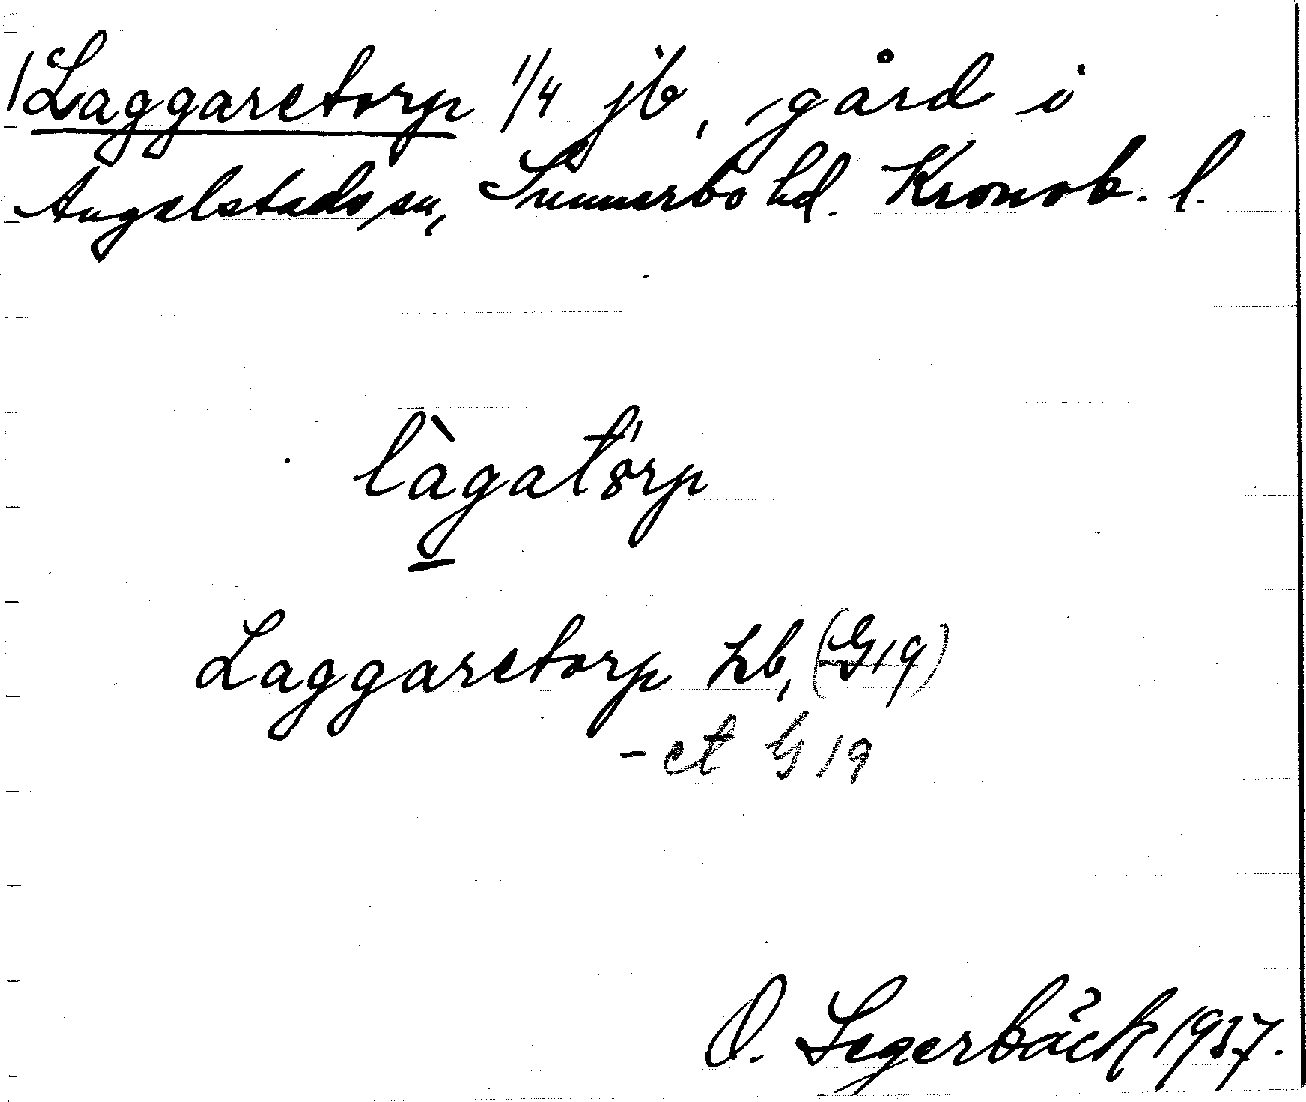 Laggaretorp 1/4 jb, gård i
Angelstads sn, Sunnerbo hd. Kronob. l.
làgatörp
Laggaretorp hb, (G19)
- et G19
O. Segerbäck 1937.